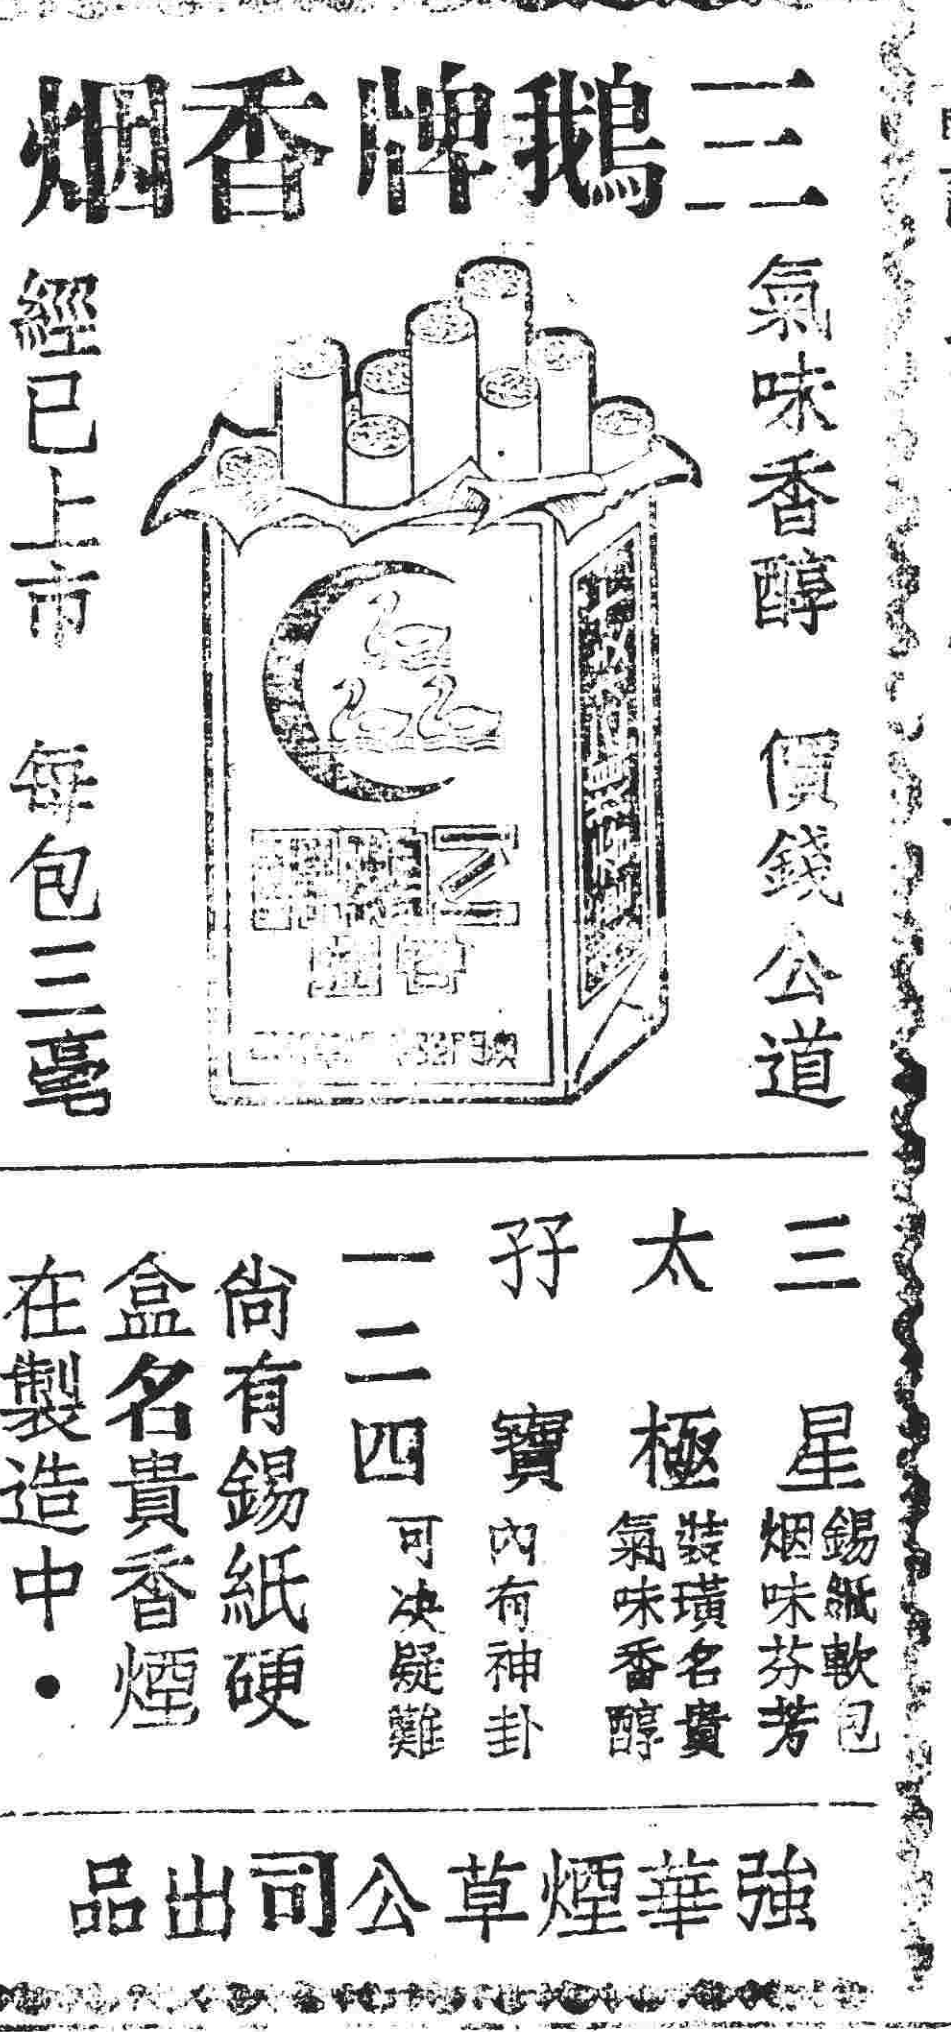 三鵝牌香烟
氣味香醇 價錢公道
經已上市 每包三毫
三星
錫紙軟包
烟味芬芳
太極
裝璜名貴
氣味香醇
孖寶
內有神卦
一二四
可决疑難
尙有錫紙硬
盒名貴香煙
在製造中•
強華煙草公司出品